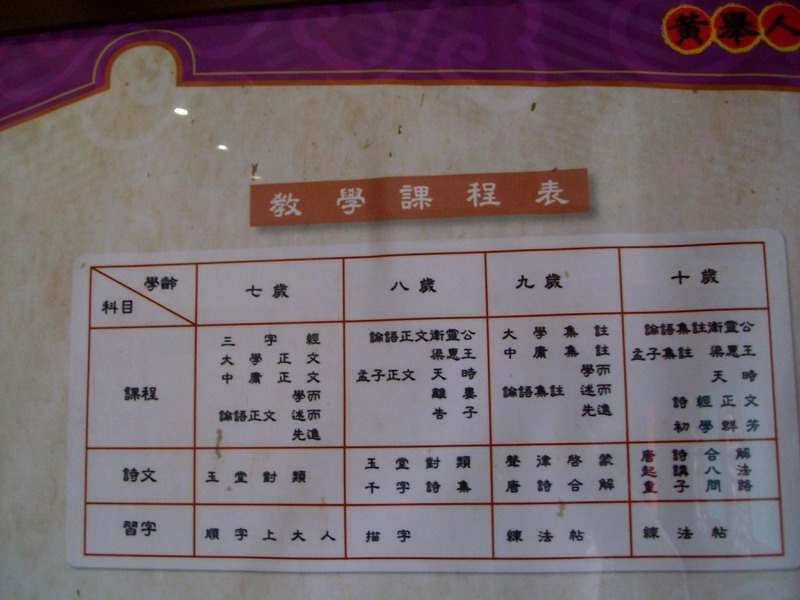 黃舉人
教學課程表
學齡 七歲 八歲 九歲 十歲
科目
課程
三字經
大學正文
中庸正文
學而
論語正文 述而
先進
論語正文衛靈公
梁惠王
孟子正文 天時
離婁
告子
大學集註
中庸集註
學而
論語集註 述而
先進
論語集註衛靈公
孟子集註 梁惠王
天時
詩經正文
初學群芳
詩文
玉堂對類
玉堂對類
千字詩集
聲律啓蒙
唐詩合解
唐詩合解
起講八法
童子問路
習字 順字上大人 描字 練法帖 練法帖